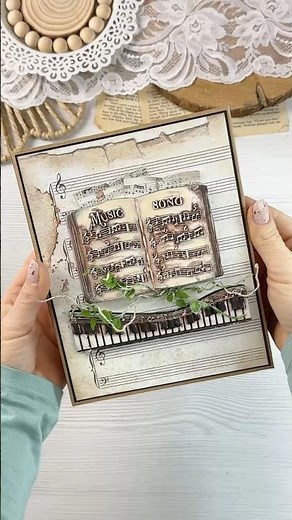 MUSIC
SONG